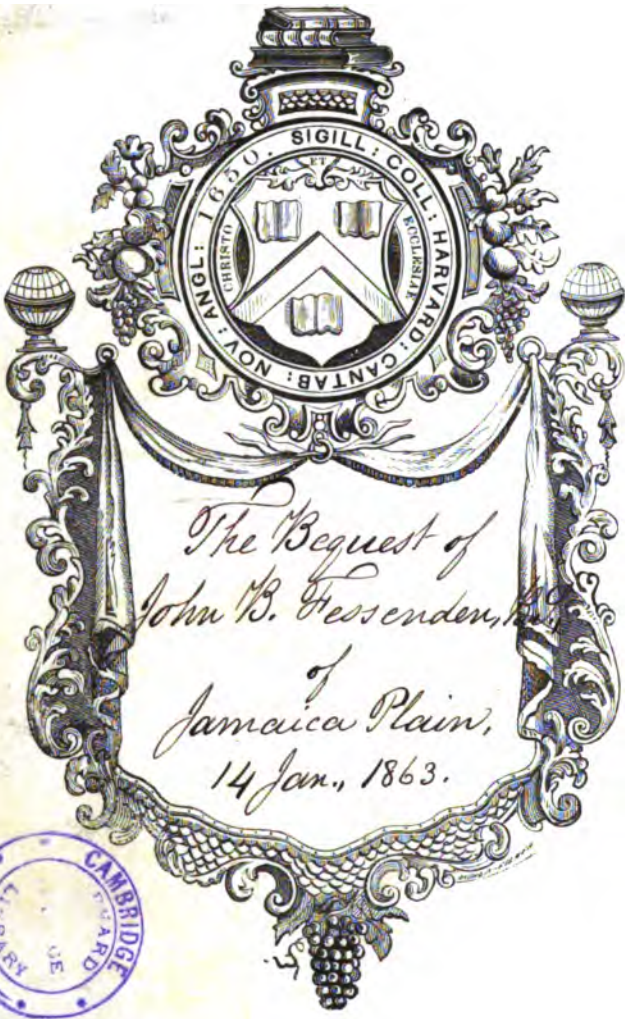 SIGILL: COLL: HARVARD: CANTAB: NOV: ANGL: 1650.
ET
CHRISTO
ECCLESIAE
The Bequest of
John B. Fessenden,
of
Jamaica Plain,
14 Jan., 1863.
CAMBRIDGE